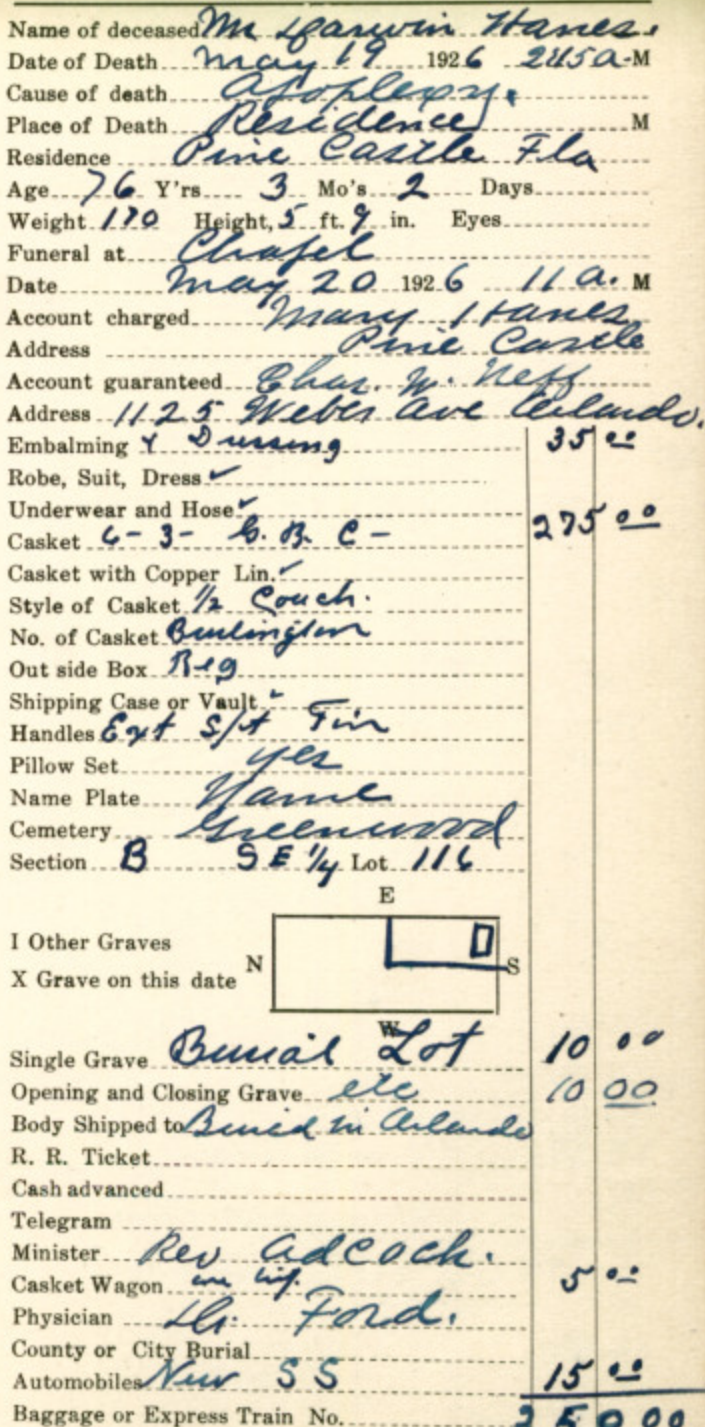 Name of deceased Mr Darwin Hanes.
Date of Death May 19 1926 245 a-M
Cause of death Apoplexy.
Place of Death Residence M
Residence Pine Castle Fla
Age 76 Y'rs 3 Mo's 2 Days
Weight 170 Height, 5 ft. 9 in. Eyes
Funeral at Chapel
Date May 20 1926 11 a. M
Account charged Mary Hanes
Address Pine Castle
Account guaranteed Chas. W. Neff
Address 1125 Weber Ave Orlando.
Embalming & Dressing 35 00
Robe, Suit, Dress ✓
Underwear and Hose ✓
Casket 6-3- C- 275 00
Casket with Copper Lin. ✓
Style of Casket 1/2 Couch.
No. of Casket Burlington
Out side Box Reg
Shipping Case or Vault ✓
Handles Ext S/t Fin
Pillow Set yes
Name Plate Name
Cemetery Greenwood
Section B SE 1/4 Lot 116
E
I Other Graves
N S
X Grave on this date
W
Single Grave Burial Lot 10 00
Opening and Closing Grave etc 10 00
Body Shipped to Buried in Orlando
R. R. Ticket
Cash advanced
Telegram
Minister Rev Adcock.
Casket Wagon 5 00
Physician Dr. Ford.
County or City Burial
Automobiles New SS 15 00
Baggage or Express Train No. 00